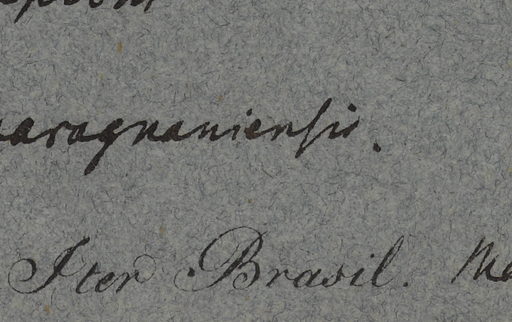 maragnaniensis.
Iter Brasil.